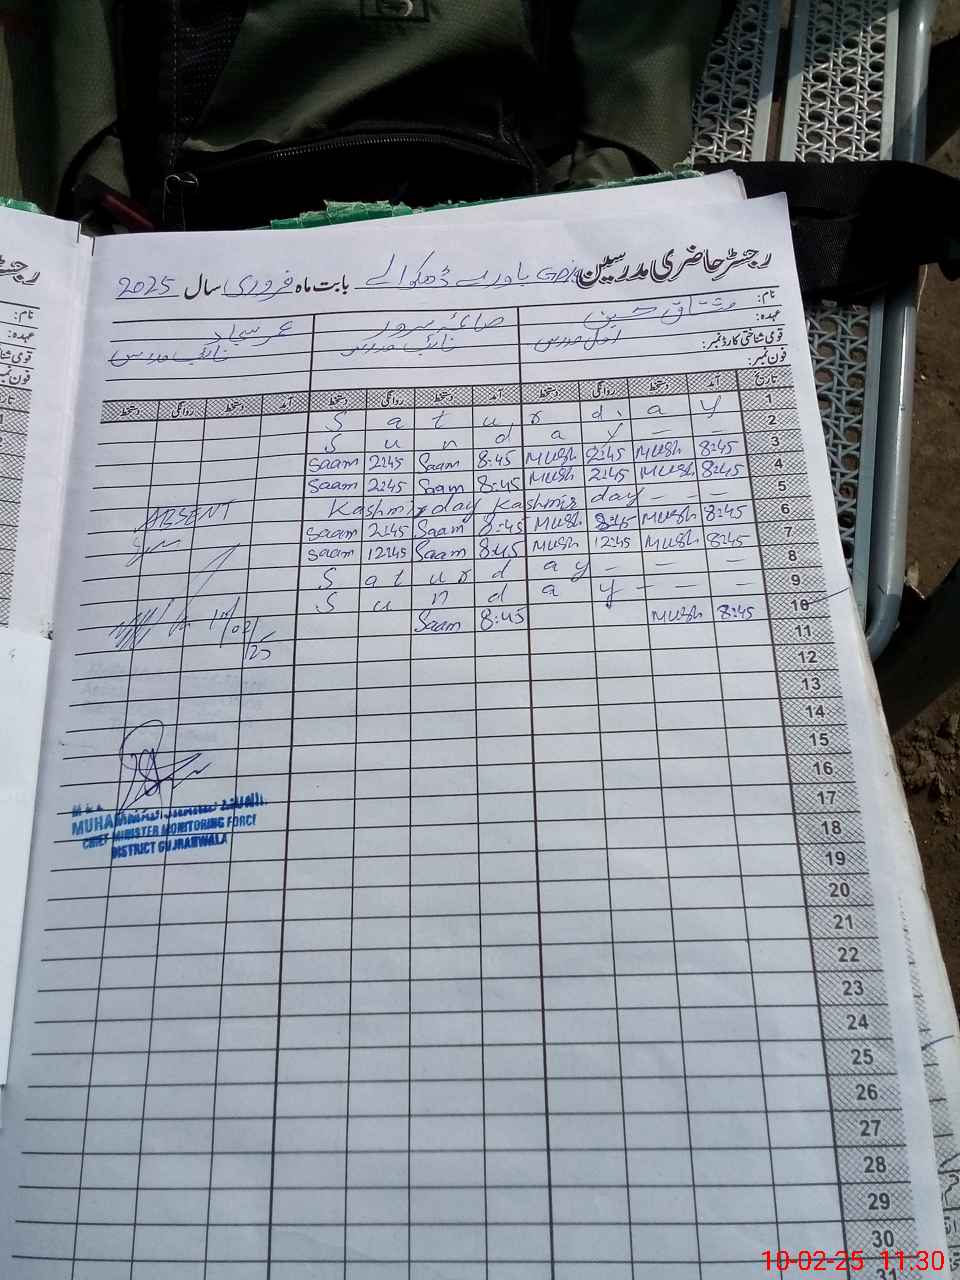 رجسٹر حاضری مدرسین بابت ماہ فروری سال 2025
نام: مشتاق حسین صائمہ سرور
عہدہ: اول مدرس نائب مدرس نائب مدرس
قومی شناختی کارڈ نمبر:
فون نمبر:
تاریخ آمد دستخط روانگی دستخط آمد دستخط روانگی دستخط آمد دستخط روانگی دستخط
S a t u r d a y 1
S u n d a y - - 2
Saam 2:45 Saam 8:45 Mush 2:45 Mush 8:45 3
Saam 2:45 Saam 8:45 Mush 2:45 Mush 8:45 4
Kashmir day Kashmir day - - - 5
ABSENT Saam 2:45 Saam 8:45 Mush 2:45 Mush 8:45 6
Saam 12:45 Saam 8:45 Mush 12:45 Mush 8:45 7
S a t u r d a y - - - 8
S u n d a y - - - 9
Saam 8:45 Mush 8:45 10
10/02/25
11
12
13
14
15
16
17
18
19
20
21
22
23
24
25
26
27
28
29
30
31
CHIEF MINISTER MONITORING FORCE
DISTRICT GUJRANWALA
10-02-25 11.30